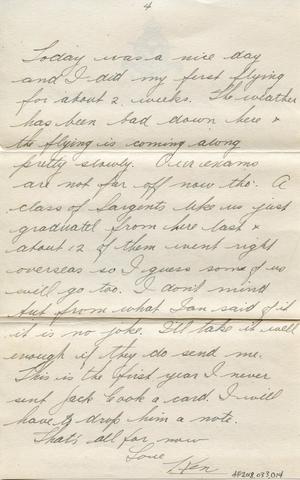 4
Today was a nice day
and I did my first flying
for about 2 weeks. The weather
has been bad down here &
the flying is coming along
pretty slowly. Our exams
are not far off now tho. A
class of Sargents like us just
graduated from here last &
about 12 of them went right
overseas so I guess some of us
will go too. I don't mind
but from what Ian said of it
it is no joke. I'll take it well
enough if they do send me.
This is the first year I never
sent Jack Cook a card. I will
have to drop him a note.
That's all for now
Love
Ken
AF208.033.014